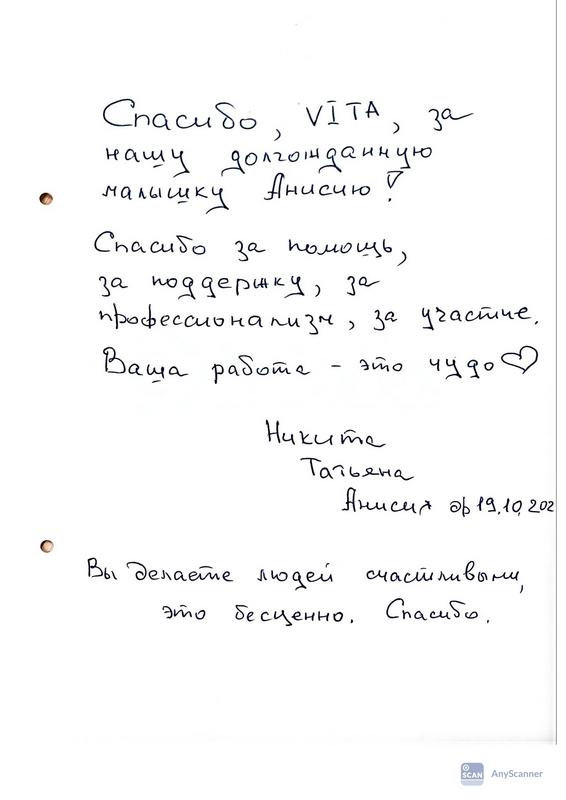 Спасибо, VITA, за
нашу долгожданную
малышку Анисию!
Спасибо за помощь,
за поддержку, за
профессионализм, за участие.
Ваша работа - это чудо♡
Никита
Татьяна
Анисия др 19.10.202
Вы делаете людей счастливыми,
это бесценно. Спасибо.
SCAN AnyScanner